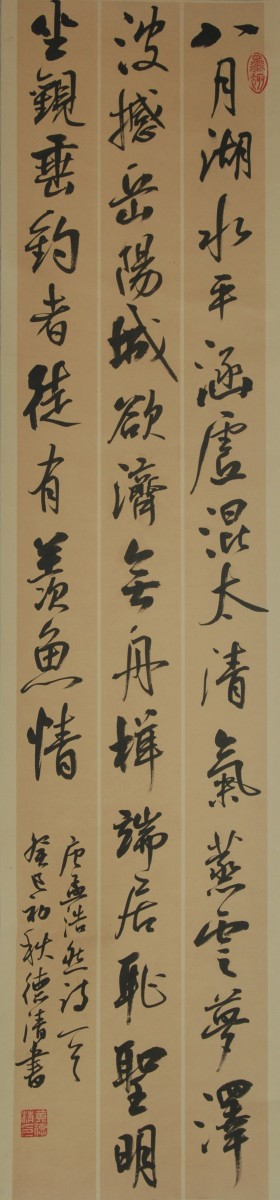 八月湖水平涵虛混太清氣蒸雲夢澤
波撼岳陽城欲濟無舟楫端居恥聖明
坐觀垂釣者徒有羨魚情
唐孟浩然詩一首
癸巳初秋德清書